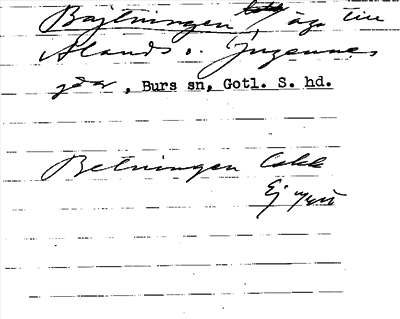 Bajtningen, äga till
Ålands o. Jngennes
gdar, Burs sn, Gotl. S. hd.
Betningen
Ej